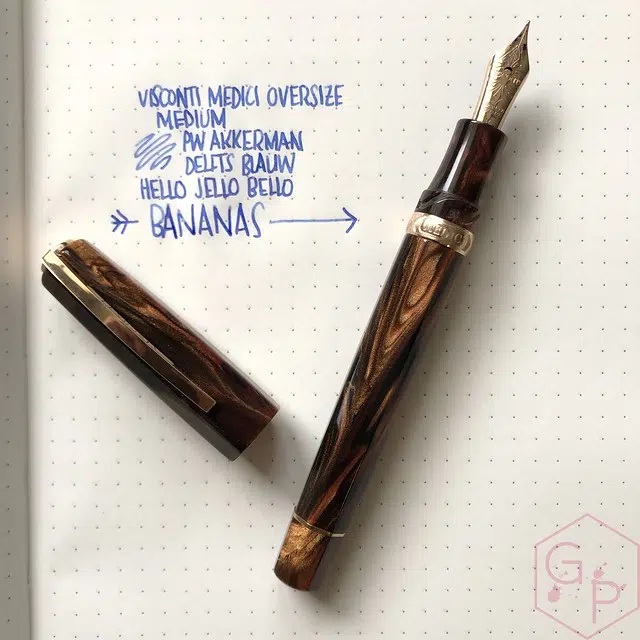 VISCONTI MEDICI OVERSIZE
MEDIUM
PW AKKERMAN
DELFTS BLAUW
HELLO JELLO BELLO
BANANAS
G P